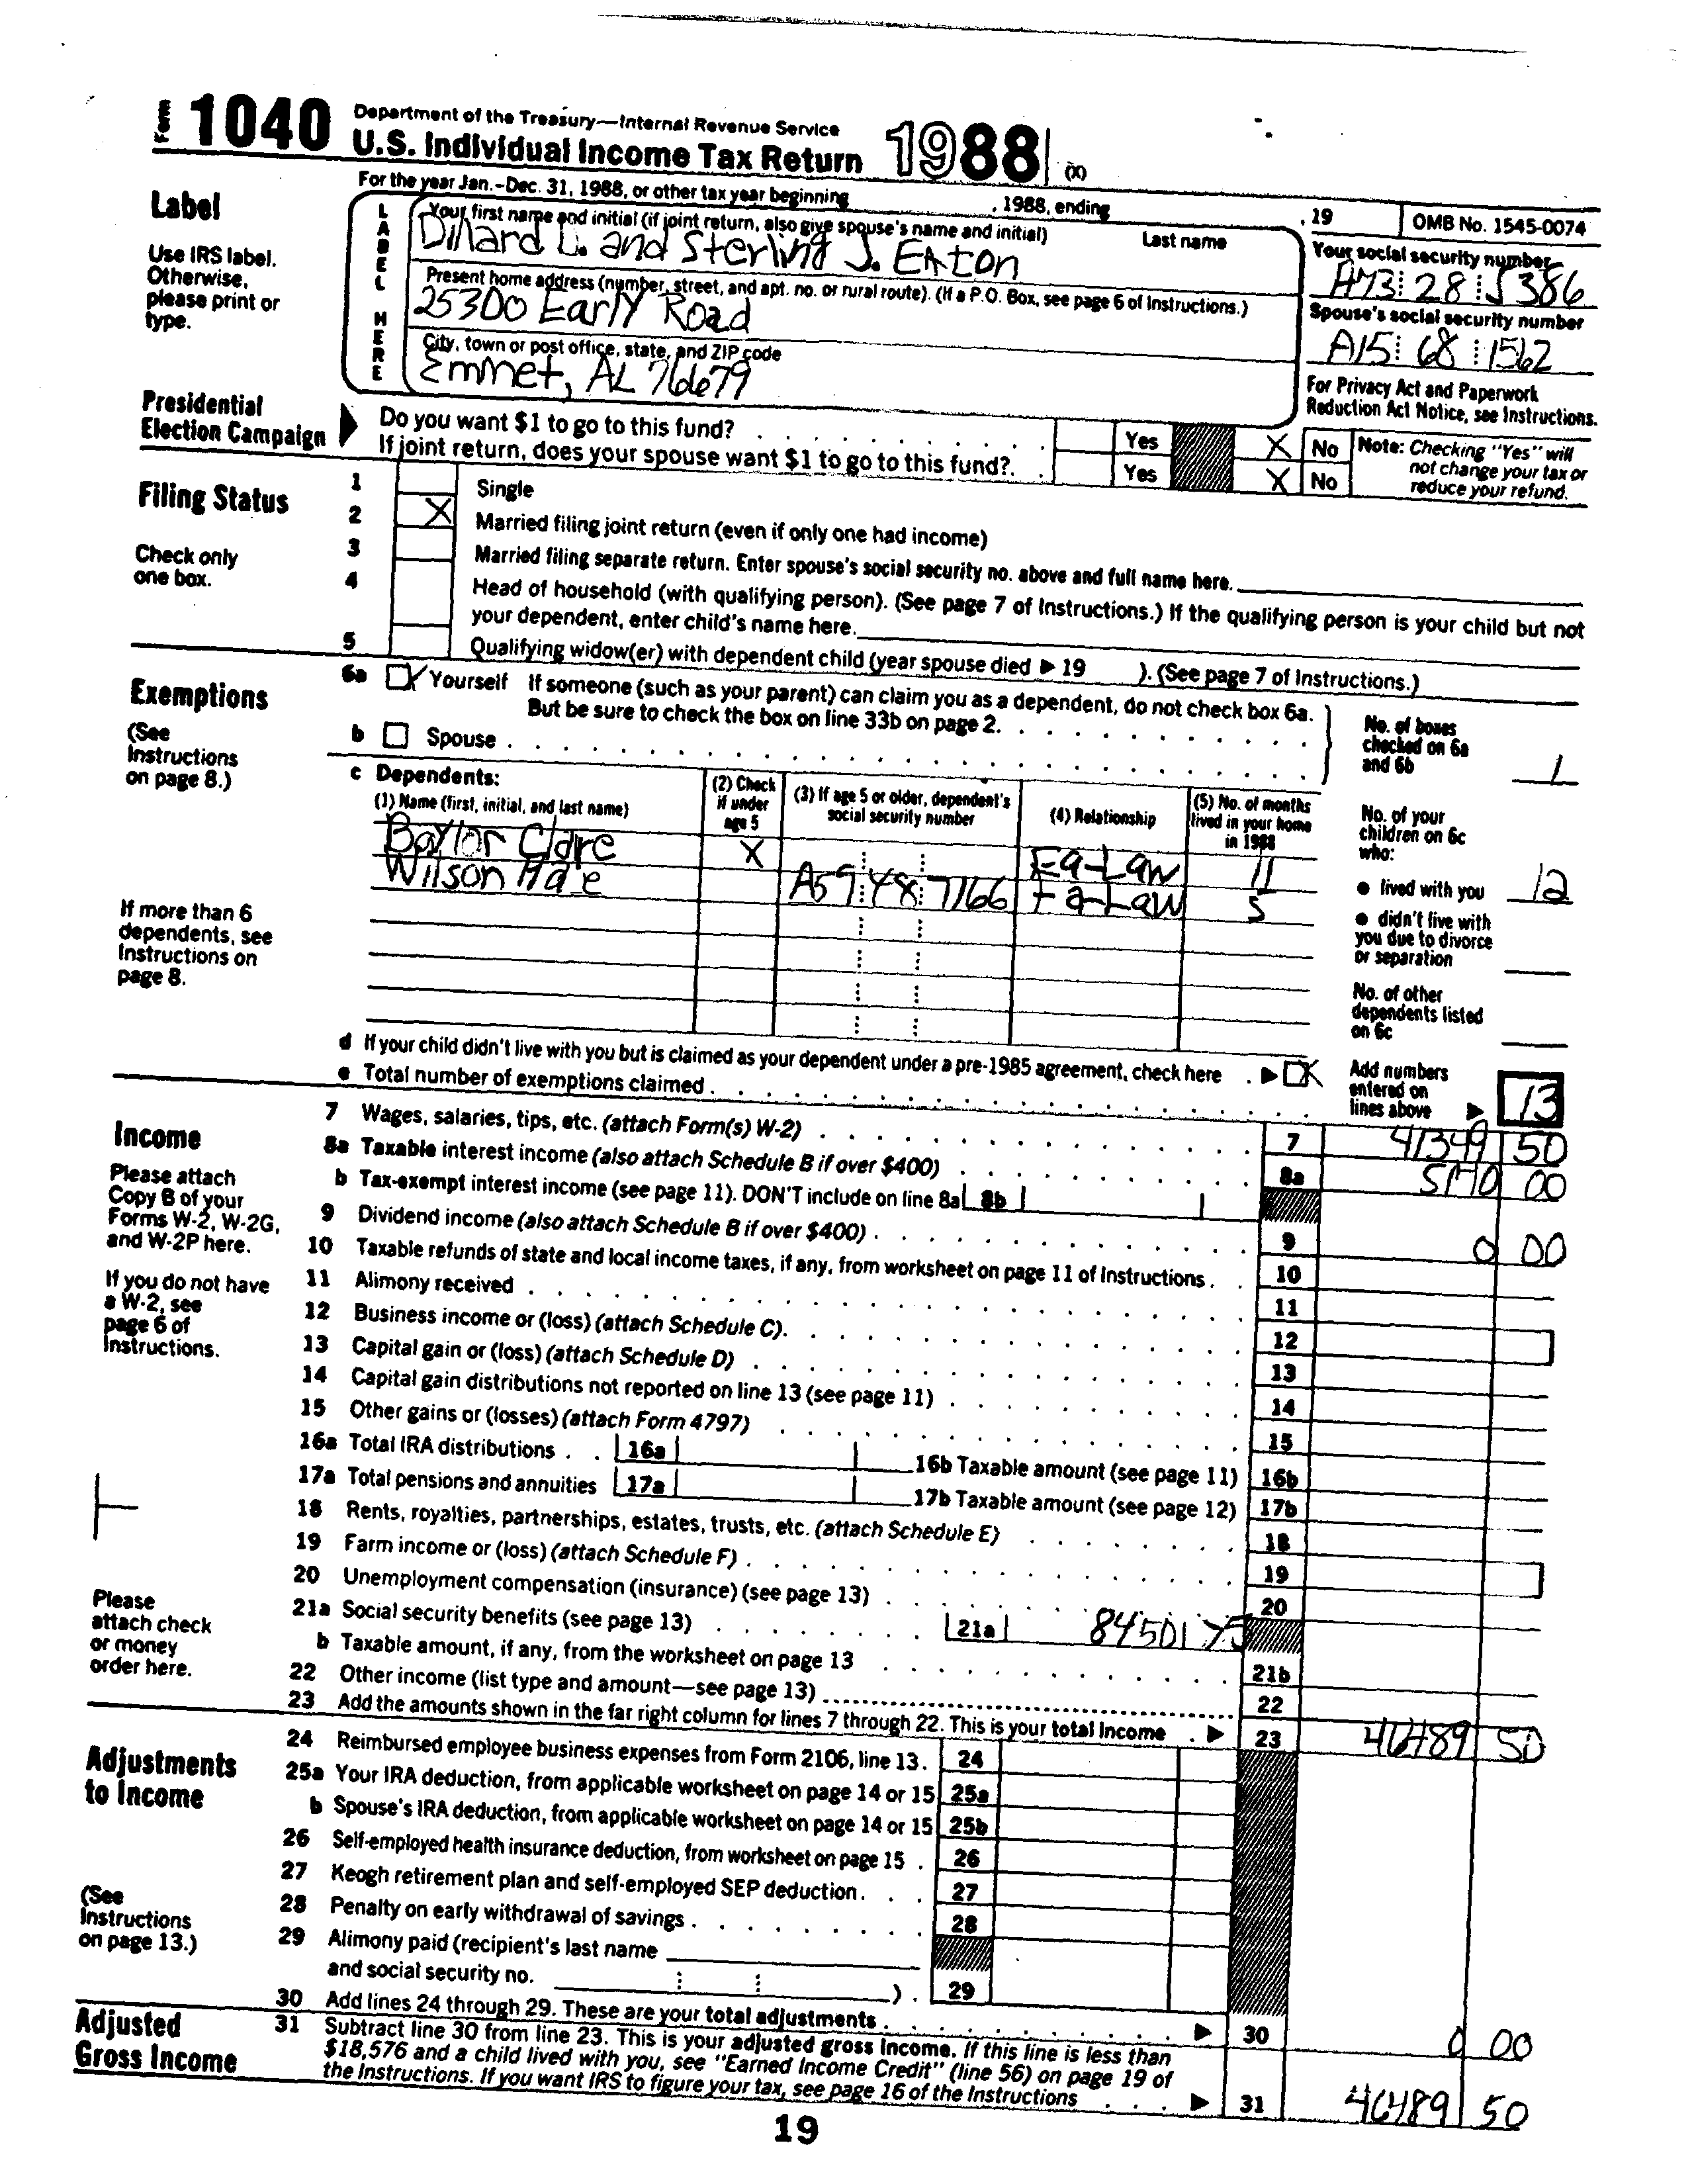 Form 1040 Department of the Treasury—Internal Revenue Service
U.S. Individual Income Tax Return 1988 (X)
For the year Jan.-Dec. 31, 1988, or other tax year beginning , 1988, ending , 19 OMB No. 1545-0074
Label
Use IRS label. Otherwise, please print or type.
LABEL HERE
Your first name and initial (if joint return, also give spouse's name and initial) Last name
Dillard L. and Sterling J. Eaton
Your social security number
A73 28 5386
Present home address (number, street, and apt. no. or rural route). (If a P.O. Box, see page 6 of Instructions.)
25300 Early Road
Spouse's social security number
A15 68 1562
City, town or post office, state, and ZIP code
Emmet, AL 76679
For Privacy Act and Paperwork Reduction Act Notice, see Instructions.
Presidential Election Campaign
Do you want $1 to go to this fund? Yes X No
If joint return, does your spouse want $1 to go to this fund? Yes X No
Note: Checking "Yes" will not change your tax or reduce your refund.
Filing Status
Check only one box.
1 Single
2 X Married filing joint return (even if only one had income)
3 Married filing separate return. Enter spouse's social security no. above and full name here.
4 Head of household (with qualifying person). (See page 7 of Instructions.) If the qualifying person is your child but not
your dependent, enter child's name here.
5 Qualifying widow(er) with dependent child (year spouse died ▶ 19 ). (See page 7 of Instructions.)
Exemptions
(See Instructions on page 8.)
6a X Yourself If someone (such as your parent) can claim you as a dependent, do not check box 6a.
But be sure to check the box on line 33b on page 2.
b Spouse
No. of boxes checked on 6a and 6b 1
c Dependents:
(1) Name (first, initial, and last name) (2) Check if under age 5 (3) If age 5 or older, dependent's social security number (4) Relationship (5) No. of months lived in your home in 1988
Baylor Clare X Fa-Law 11
Wilson Hale A59 48 7166 Fa-Law 5
If more than 6 dependents, see Instructions on page 8.
No. of your children on 6c who:
• lived with you 12
• didn't live with you due to divorce or separation
No. of other dependents listed on 6c
d If your child didn't live with you but is claimed as your dependent under a pre-1985 agreement, check here ▶ X
e Total number of exemptions claimed
Add numbers entered on lines above ▶ 13
Income
Please attach Copy B of your Forms W-2, W-2G, and W-2P here.
If you do not have a W-2, see page 6 of Instructions.
Please attach check or money order here.
7 Wages, salaries, tips, etc. (attach Form(s) W-2) 7 41349 50
8a Taxable interest income (also attach Schedule B if over $400) 8a 5140 00
b Tax-exempt interest income (see page 11). DON'T include on line 8a 8b
9 Dividend income (also attach Schedule B if over $400) 9 0 00
10 Taxable refunds of state and local income taxes, if any, from worksheet on page 11 of Instructions 10
11 Alimony received 11
12 Business income or (loss) (attach Schedule C) 12
13 Capital gain or (loss) (attach Schedule D) 13
14 Capital gain distributions not reported on line 13 (see page 11) 14
15 Other gains or (losses) (attach Form 4797) 15
16a Total IRA distributions 16a 16b Taxable amount (see page 11) 16b
17a Total pensions and annuities 17a 17b Taxable amount (see page 12) 17b
18 Rents, royalties, partnerships, estates, trusts, etc. (attach Schedule E) 18
19 Farm income or (loss) (attach Schedule F) 19
20 Unemployment compensation (insurance) (see page 13) 20
21a Social security benefits (see page 13) 21a 8450 75
b Taxable amount, if any, from the worksheet on page 13 21b
22 Other income (list type and amount—see page 13) 22
23 Add the amounts shown in the far right column for lines 7 through 22. This is your total income ▶ 23 46489 50
Adjustments to Income
(See Instructions on page 13.)
24 Reimbursed employee business expenses from Form 2106, line 13 24
25a Your IRA deduction, from applicable worksheet on page 14 or 15 25a
b Spouse's IRA deduction, from applicable worksheet on page 14 or 15 25b
26 Self-employed health insurance deduction, from worksheet on page 15 26
27 Keogh retirement plan and self-employed SEP deduction 27
28 Penalty on early withdrawal of savings 28
29 Alimony paid (recipient's last name
and social security no. ) 29
30 Add lines 24 through 29. These are your total adjustments ▶ 30 0 00
Adjusted Gross Income
31 Subtract line 30 from line 23. This is your adjusted gross income. If this line is less than
$18,576 and a child lived with you, see "Earned Income Credit" (line 56) on page 19 of
the Instructions. If you want IRS to figure your tax, see page 16 of the Instructions ▶ 31 46489 50
19